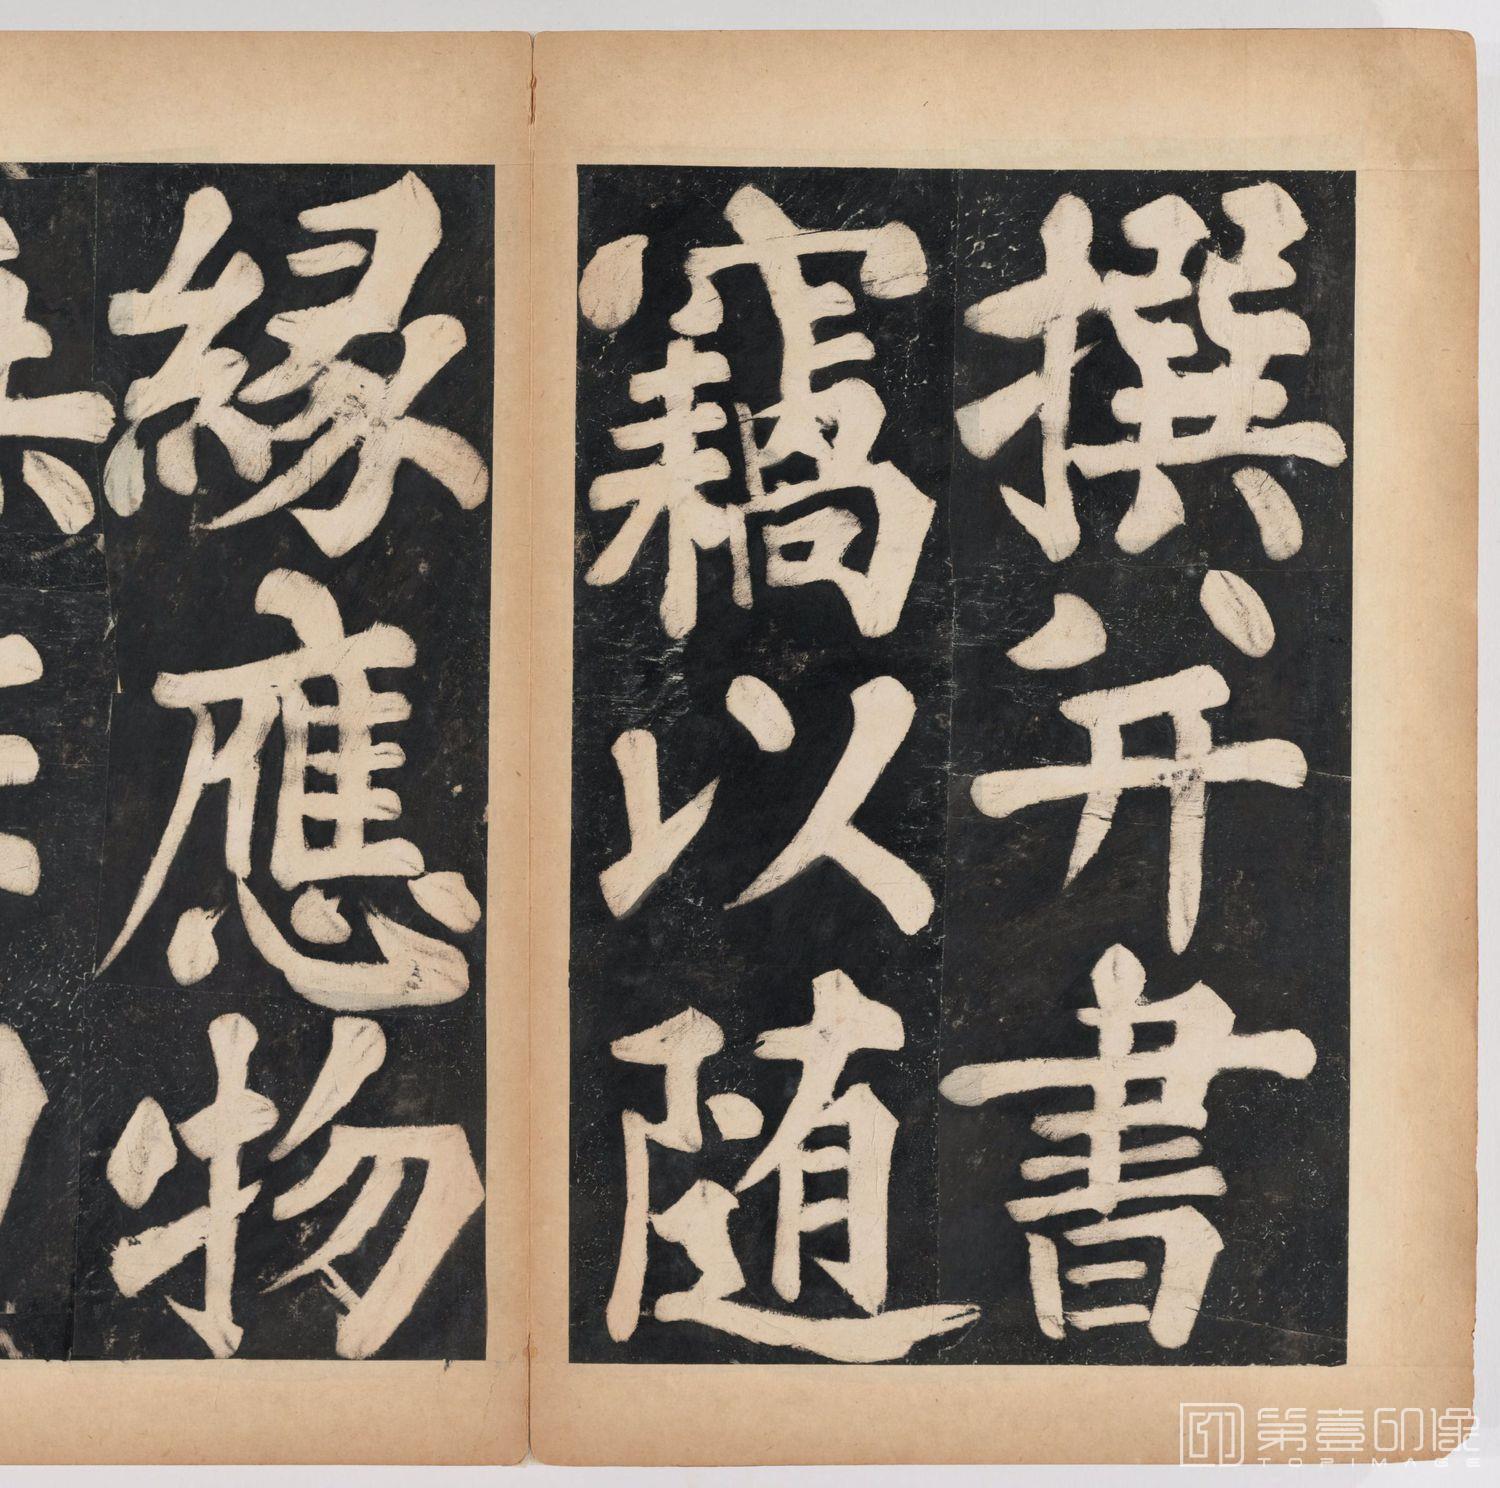 撰并書
竊以随
緣應物
第壹印像
TOPIMAGE